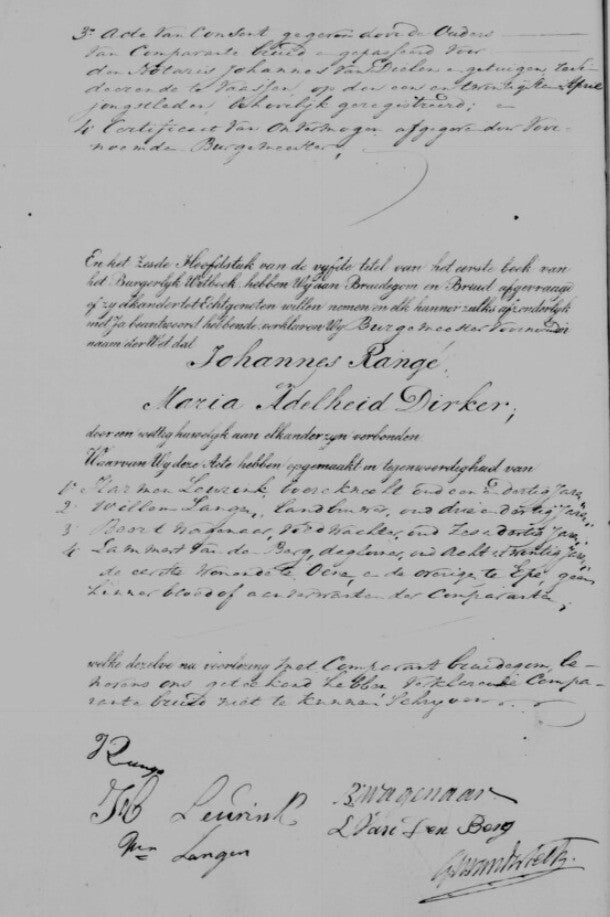 3o Acte van Consent gegeven door de Ouders
van Comparante bruid en gepasseerd voor
den Notaris Johannes van Dielen en getuigen, resi-
deerende te Vaassen, op den een en twintigsten April
jongstleden, behoorlijk geregistreerd; en
4o Certificaat van Onvermogen afgegeven door voor-
noemden Burgemeester,
En het zesde Hoofdstuk van de vyfde titel van het eerste boek van
het Burgerlyk Wetboek hebben Wy aan Bruidegom en Bruid afgevraagd
of zy elkander tot Echtgenoten willen nemen en elk hunner zulks afzonderlyk
met Ja beantwoord hebbende, verklaren Wy Burgemeester voornoemd in
naam der Wet dat
Johannes Rangé,
en
Maria Adelheid Dirker;
door een wettig huwelyk aan elkander zyn verbonden
Waarvan Wy deze Acte hebben opgemaakt in tegenwoordigheid van
1o Harmen Leurink, boereknecht oud een en dertig Jaren;
2. Willem Langen, landbouwer, oud drie en dertig Jaren;
3 Beert Wagenaar, veldwachter, oud zes en dertig Jaren;
4. Lammert van den Berg, oud acht en twintig Jaren;
de eerste wonende te Oene, en de overigen te Epe, geen
hunner bloed of aanverwanten der Comparanten,
welke dezelve na voorlezing met Comparant bruidegom, be-
nevens ons geteekend hebben verklarende Compa-
rante bruid niet te kunnen schryven.
J Range
H Leurink
Wm Langen
B Wagenaar
L Van den Berg